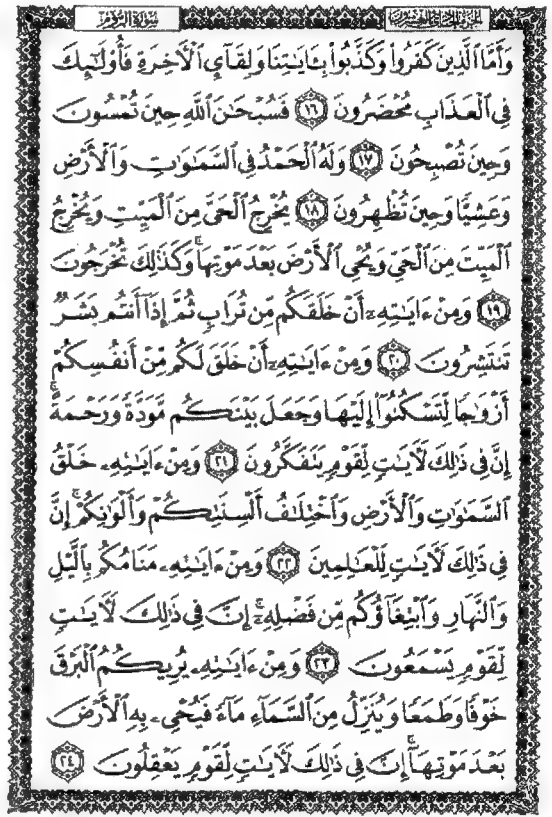 سورة الروم
الجزء الحادي والعشرون
وَأَمَّا ٱلَّذِينَ كَفَرُواْ وَكَذَّبُواْ بِـَٔايَٰتِنَا وَلِقَآيِٕ ٱلْأَخِرَةِ فَأُوْلَٰٓئِكَ
فِى ٱلْعَذَابِ مُحْضَرُونَ ١٦ فَسُبْحَٰنَ ٱللَّهِ حِينَ تُمْسُونَ
وَحِينَ تُصْبِحُونَ ١٧ وَلَهُ ٱلْحَمْدُ فِى ٱلسَّمَٰوَٰتِ وَٱلْأَرْضِ
وَعَشِيًّا وَحِينَ تُظْهِرُونَ ١٨ يُخْرِجُ ٱلْحَىَّ مِنَ ٱلْمَيِّتِ وَيُخْرِجُ
ٱلْمَيِّتَ مِنَ ٱلْحَىِّ وَيُحْىِ ٱلْأَرْضَ بَعْدَ مَوْتِهَا ۚ وَكَذَٰلِكَ تُخْرَجُونَ
١٩ وَمِنْ ءَايَٰتِهِۦٓ أَنْ خَلَقَكُم مِّن تُرَابٍ ثُمَّ إِذَآ أَنتُم بَشَرٌ
تَنتَشِرُونَ ٢٠ وَمِنْ ءَايَٰتِهِۦٓ أَنْ خَلَقَ لَكُم مِّنْ أَنفُسِكُمْ
أَزْوَٰجًا لِّتَسْكُنُوٓاْ إِلَيْهَا وَجَعَلَ بَيْنَكُم مَّوَدَّةً وَرَحْمَةً ۚ
إِنَّ فِى ذَٰلِكَ لَأَيَٰتٍ لِّقَوْمٍ يَتَفَكَّرُونَ ٢١ وَمِنْ ءَايَٰتِهِۦ خَلْقُ
ٱلسَّمَٰوَٰتِ وَٱلْأَرْضِ وَٱخْتِلَٰفُ أَلْسِنَتِكُمْ وَأَلْوَٰنِكُمْ ۚ إِنَّ
فِى ذَٰلِكَ لَأَيَٰتٍ لِّلْعَٰلِمِينَ ٢٢ وَمِنْ ءَايَٰتِهِۦ مَنَامُكُم بِٱلَّيْلِ
وَٱلنَّهَارِ وَٱبْتِغَآؤُكُم مِّن فَضْلِهِۦٓ ۚ إِنَّ فِى ذَٰلِكَ لَأَيَٰتٍ
لِّقَوْمٍ يَسْمَعُونَ ٢٣ وَمِنْ ءَايَٰتِهِۦ يُرِيكُمُ ٱلْبَرْقَ
خَوْفًا وَطَمَعًا وَيُنَزِّلُ مِنَ ٱلسَّمَآءِ مَآءً فَيُحْىِۦ بِهِ ٱلْأَرْضَ
بَعْدَ مَوْتِهَآ ۚ إِنَّ فِى ذَٰلِكَ لَأَيَٰتٍ لِّقَوْمٍ يَعْقِلُونَ ٢٤